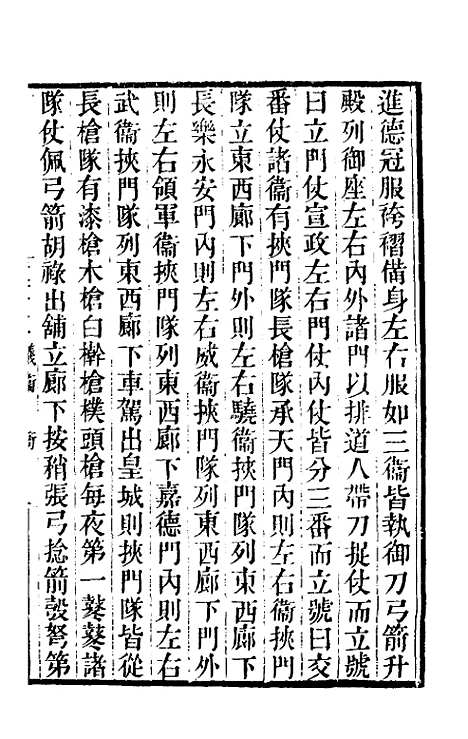 進德冠服袴褶備身左右服如三衞皆執御刀弓箭升
殿列御座左右內外諸門以排道人帶刀捉仗而立號
曰立門仗宣政左右門仗內仗皆分三番而立號曰交
番仗諸衞有挾門隊長槍隊承天門內則左右衞挾門
隊立東西廊下門外則左右驍衞挾門隊列東西廊下
長樂永安門內則左右威衞挾門隊列東西廊下門外
則左右領軍衞挾門隊列東西廊下嘉德門內則左右
武衞挾門隊列東西廊下車駕出皇城則挾門隊皆從
長槍隊有漆槍木槍白榦槍樸頭槍每夜第一鼕鼕諸
隊仗佩弓箭胡祿出舖立廊下按矟張弓捻箭彀弩第